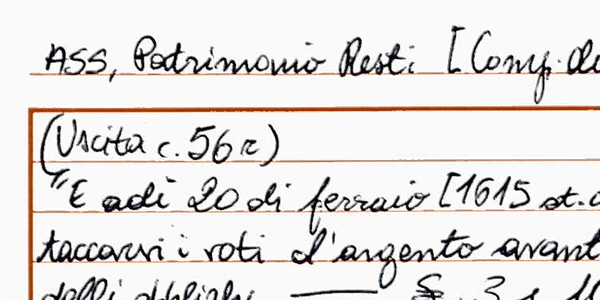 ASS, Patrimonio Resti [Comp. de
(Uscita c. 56 r)
"E adì 20 di ferraio [1615 st. c
taccarvi i voti d'argento avant
dalli obblighi — 3